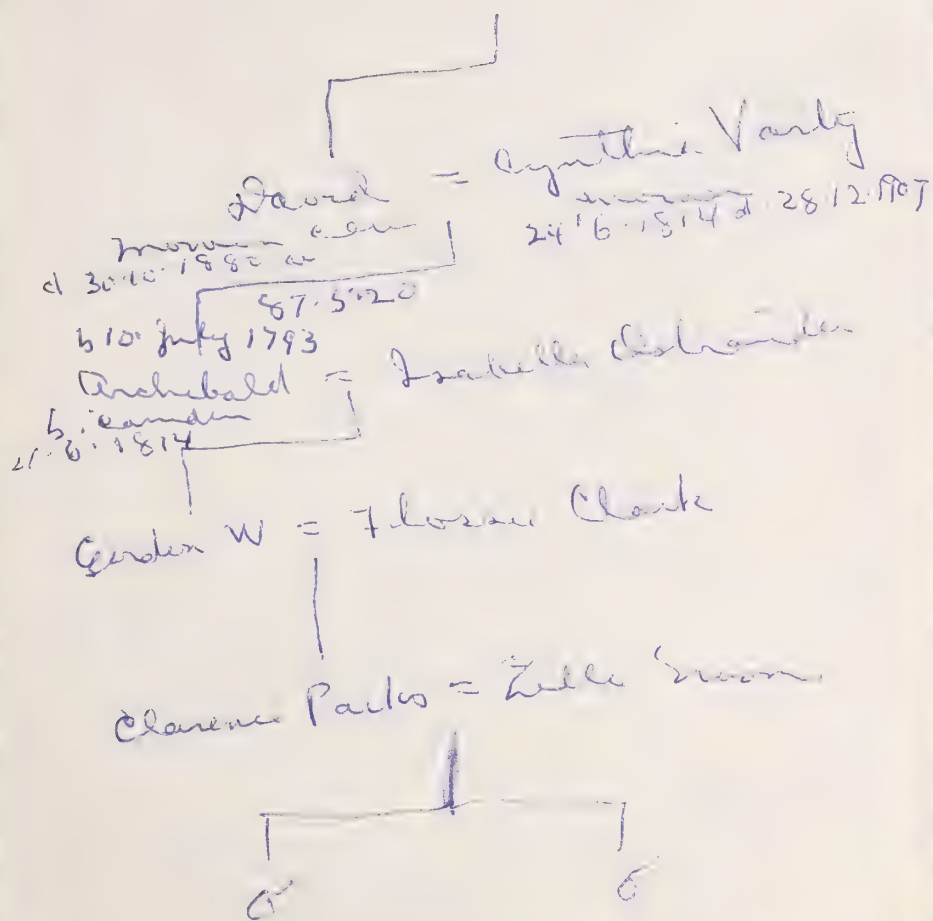 David = Cynthia Varty
24.6.1814 d. 28.12.1907
d 30.10.1880
87.5.20
b 10. July 1793
Archibald = Isabella
b. Camden
1814
Gordon W = Flossie Clark
Clarence Parks = Zella